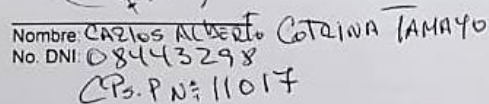 Nombre: CARLOS ALBERTO COTRINA TAMAYO
No. DNI: 08443298
CPs. P Nº 11017